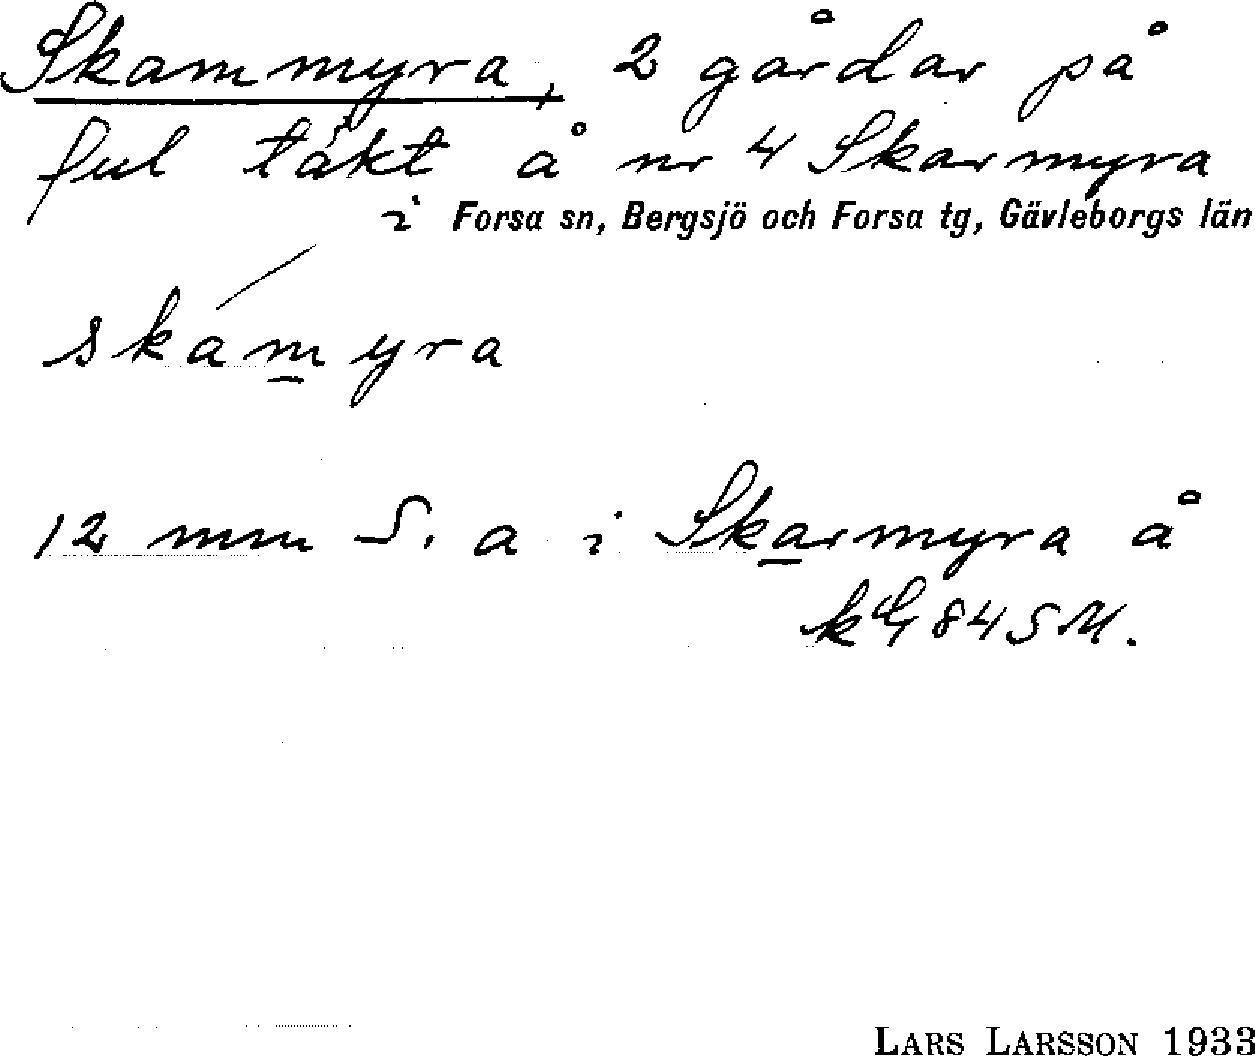 Skammyra, 2 gårdar på
ful täkt å nr 4 Skarmyra
i Forsa sn, Bergsjö och Forsa tg, Gävleborgs län
skámyra
12 mm S. a i Skarmyra å
kG 84 SM.
LARS LARSSON 1933